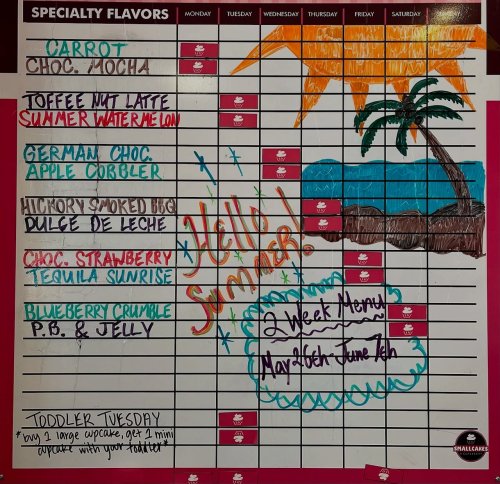 SPECIALTY FLAVORS MONDAY TUESDAY WEDNESDAY THURSDAY FRIDAY SATURDAY
CARROT
CHOC. MOCHA
TOFFEE NUT LATTE
SUMMER WATERMELON
GERMAN CHOC.
APPLE COBBLER
HICKORY SMOKED BBQ
DULCE DE LECHE
Hello
SUMMER!
CHOC. STRAWBERRY
TEQUILA SUNRISE
2 Week Menu
May 26th-June 7th
BLUEBERRY CRUMBLE
P.B. & JELLY
TODDLER TUESDAY
*buy 1 large cupcake, get 1 mini
cupcake with your toddler*
SMALLCAKES